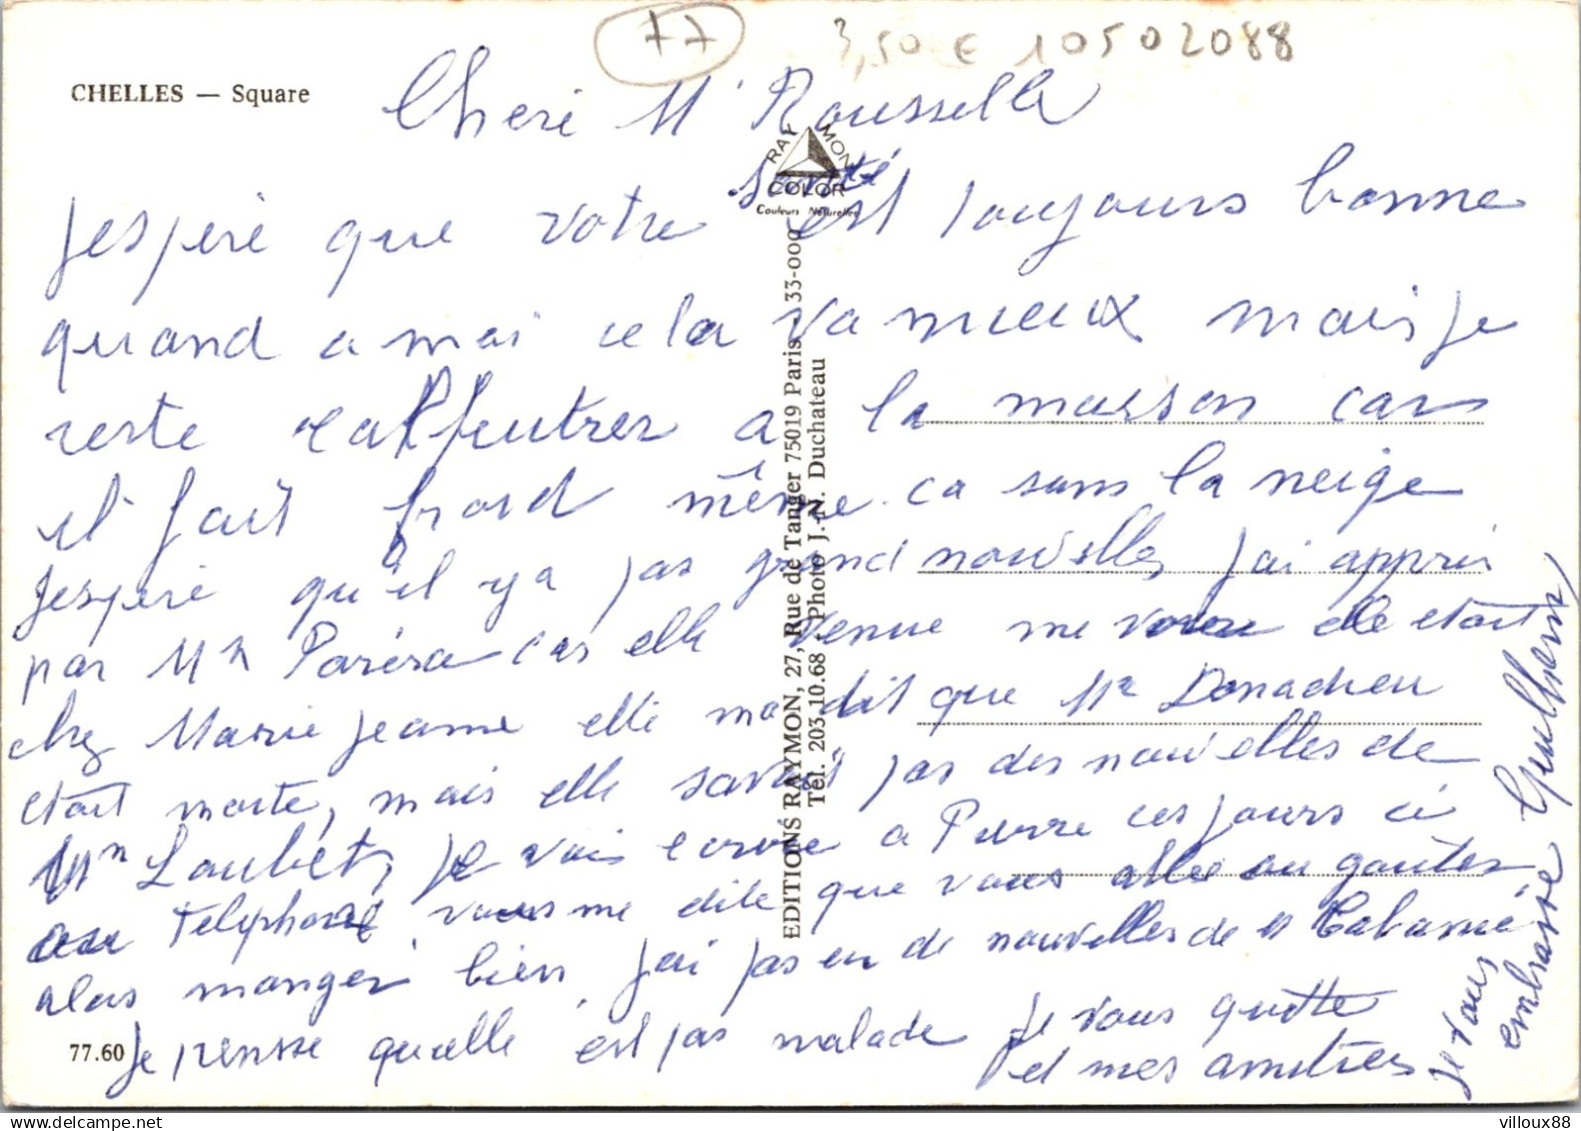 77
3,50 € 10502088
CHELLES — Square
Cheri Mr Rousselle
RAYMON
COLOR
Couleurs Naturelles
santé
jesperé que votre est toujours bonne
quand a moi cela va mieux mais je
reste calfeutrer a la maison cars
il fait froid même ca sans la neige
jesperé qu'il y a pas grand nouvelles j'ai appris
par Mn Paréra cars elle venue me voir elle etait
chez Marie jeanne elle ma dit que Mr Donadieu
etait morte, mais elle savait pas des nouvelles de
Mn Laubet, je vais ecrire a Pierre ces jours ci
au Telephone vous me dite que vous alle au goûter
alors manger bien j'ai pas eu de nouvelles de M Cabanié
77.60
Je pensse quelle est pas malade je vous quitte
et mes amitiées
je vous
embrasse Guilhem
EDITIONS RAYMON, 27, Rue de Tanger 75019 Paris 33-000
Tél. 203.10.68 - Photo J.-N. Duchateau
villoux88